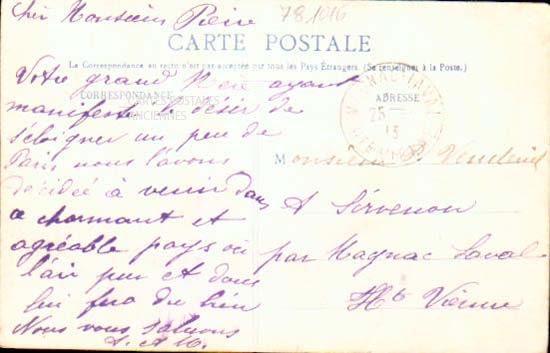 Cher Monsieur Pierre
781016
CARTE POSTALE
La Correspondance au recto n'est pas acceptée par tous les Pays Étrangers. (Se renseigner à la Poste.)
CORRESPONDANCE
CARTES POSTALES
ANCIENNES
ADRESSE
MAGNAC-LAVAL
25
13
Votre grand Père ayant
manifesté le désir de
s'eloigner un peu de
Paris nous l'avons
décidée à venir dans
ce charmant et
agréable pays où
l'air pur et doux
lui fera du bien
Nous vous saluons
Monsieur P.
A
par Magnac Laval
Hte Vienne